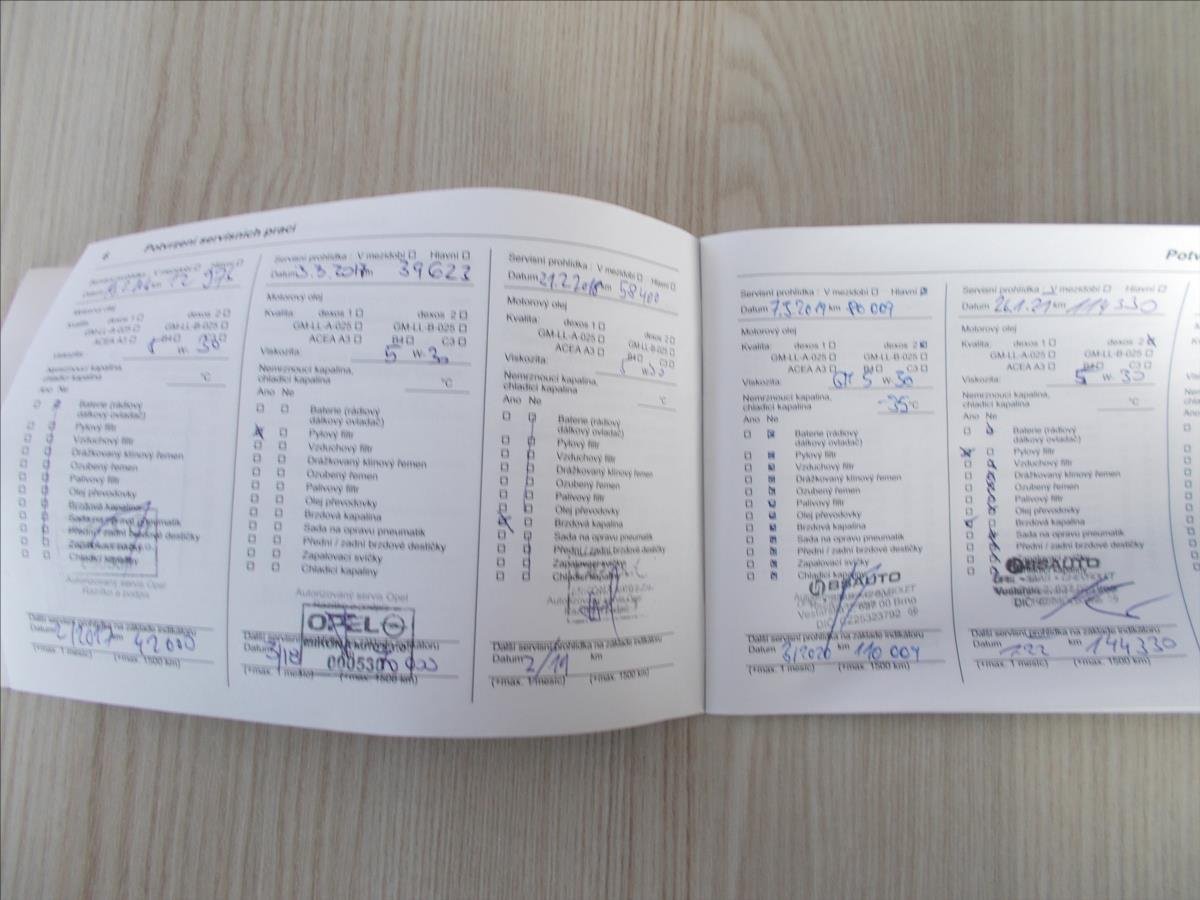 6 Potvrzení servisních prací
Servisní prohlídka : V mezidobí Hlavní
Datum km 12 972
Motorový olej
Kvalita: dexos 1 dexos 2
GM-LL-A-025 GM-LL-B-025
ACEA A3 B4 C3
5 W- 30
Nemrznoucí kapalina,
chladicí kapalina °C
Ano Ne
Baterie (rádiový
dálkový ovladač)
Pylový filtr
Vzduchový filtr
Drážkovaný klínový řemen
Ozubený řemen
Palivový filtr
Olej převodovky
Brzdová kapalina
Sada na opravu pneumatik
Přední / zadní brzdové destičky
Zapalovací svíčky
Chladicí kapaliny
Autorizovaný servis Opel
Razítko a podpis
Další servisní prohlídka na základě indikátoru
Datum 2/2017 km 42000
(+max. 1 měsíc) (+max. 1500 km)
Servisní prohlídka : V mezidobí Hlavní
Datum 3.3.2017 km 39623
Motorový olej
Kvalita: dexos 1 dexos 2
GM-LL-A-025 GM-LL-B-025
ACEA A3 B4 C3
Viskozita: 5 W- 30
Nemrznoucí kapalina,
chladicí kapalina °C
Ano Ne
Baterie (rádiový
dálkový ovladač)
Pylový filtr
Vzduchový filtr
Drážkovaný klínový řemen
Ozubený řemen
Palivový filtr
Olej převodovky
Brzdová kapalina
Sada na opravu pneumatik
Přední / zadní brzdové destičky
Zapalovací svíčky
Chladicí kapaliny
Autorizovaný servis Opel
Razítko a podpis
OPEL
Další servisní prohlídka na základě indikátoru
Datum 3/18
(+max. 1 měsíc) (+max. 1500 km)
Servisní prohlídka : V mezidobí Hlavní
Datum 21.2.2018 km 58400
Motorový olej
Kvalita: dexos 1 dexos 2
GM-LL-A-025 GM-LL-B-025
ACEA A3 B4 C3
Viskozita: 5 W- 30
Nemrznoucí kapalina,
chladicí kapalina °C
Ano Ne
Baterie (rádiový
dálkový ovladač)
Pylový filtr
Vzduchový filtr
Drážkovaný klínový řemen
Ozubený řemen
Palivový filtr
Olej převodovky
Brzdová kapalina
Sada na opravu pneumatik
Přední / zadní brzdové destičky
Zapalovací svíčky
Chladicí kapaliny
Další servisní prohlídka na základě indikátoru
Datum 2/19 km
(+max. 1 měsíc) (+max. 1500 km)
Servisní prohlídka : V mezidobí Hlavní
Datum 7.3.2019 km 80009
Motorový olej
Kvalita: dexos 1 dexos 2
GM-LL-A-025 GM-LL-B-025
ACEA A3 B4 C3
Viskozita: 5 W- 30
Nemrznoucí kapalina,
chladicí kapalina -35 °C
Ano Ne
Baterie (rádiový
dálkový ovladač)
Pylový filtr
Vzduchový filtr
Drážkovaný klínový řemen
Ozubený řemen
Palivový filtr
Olej převodovky
Brzdová kapalina
Sada na opravu pneumatik
Přední / zadní brzdové destičky
Zapalovací svíčky
Chladicí kapaliny
BSAUTO
Další servisní prohlídka na základě indikátoru
Datum 3/2020 km 110 009
(+max. 1 měsíc) (+max. 1500 km)
Servisní prohlídka : V mezidobí Hlavní
Datum 26.1.21 km 114330
Motorový olej
Kvalita: dexos 1 dexos 2
GM-LL-A-025 GM-LL-B-025
ACEA A3 B4 C3
Viskozita: 5 W- 30
Nemrznoucí kapalina,
chladicí kapalina °C
Ano Ne
Baterie (rádiový
dálkový ovladač)
Pylový filtr
Vzduchový filtr
Drážkovaný klínový řemen
Ozubený řemen
Palivový filtr
Olej převodovky
Brzdová kapalina
Sada na opravu pneumatik
Přední / zadní brzdové destičky
Zapalovací svíčky
Chladicí kapaliny
BSAUTO
Další servisní prohlídka na základě indikátoru
Datum 1.22 km 144330
(+max. 1 měsíc) (+max. 1500 km)